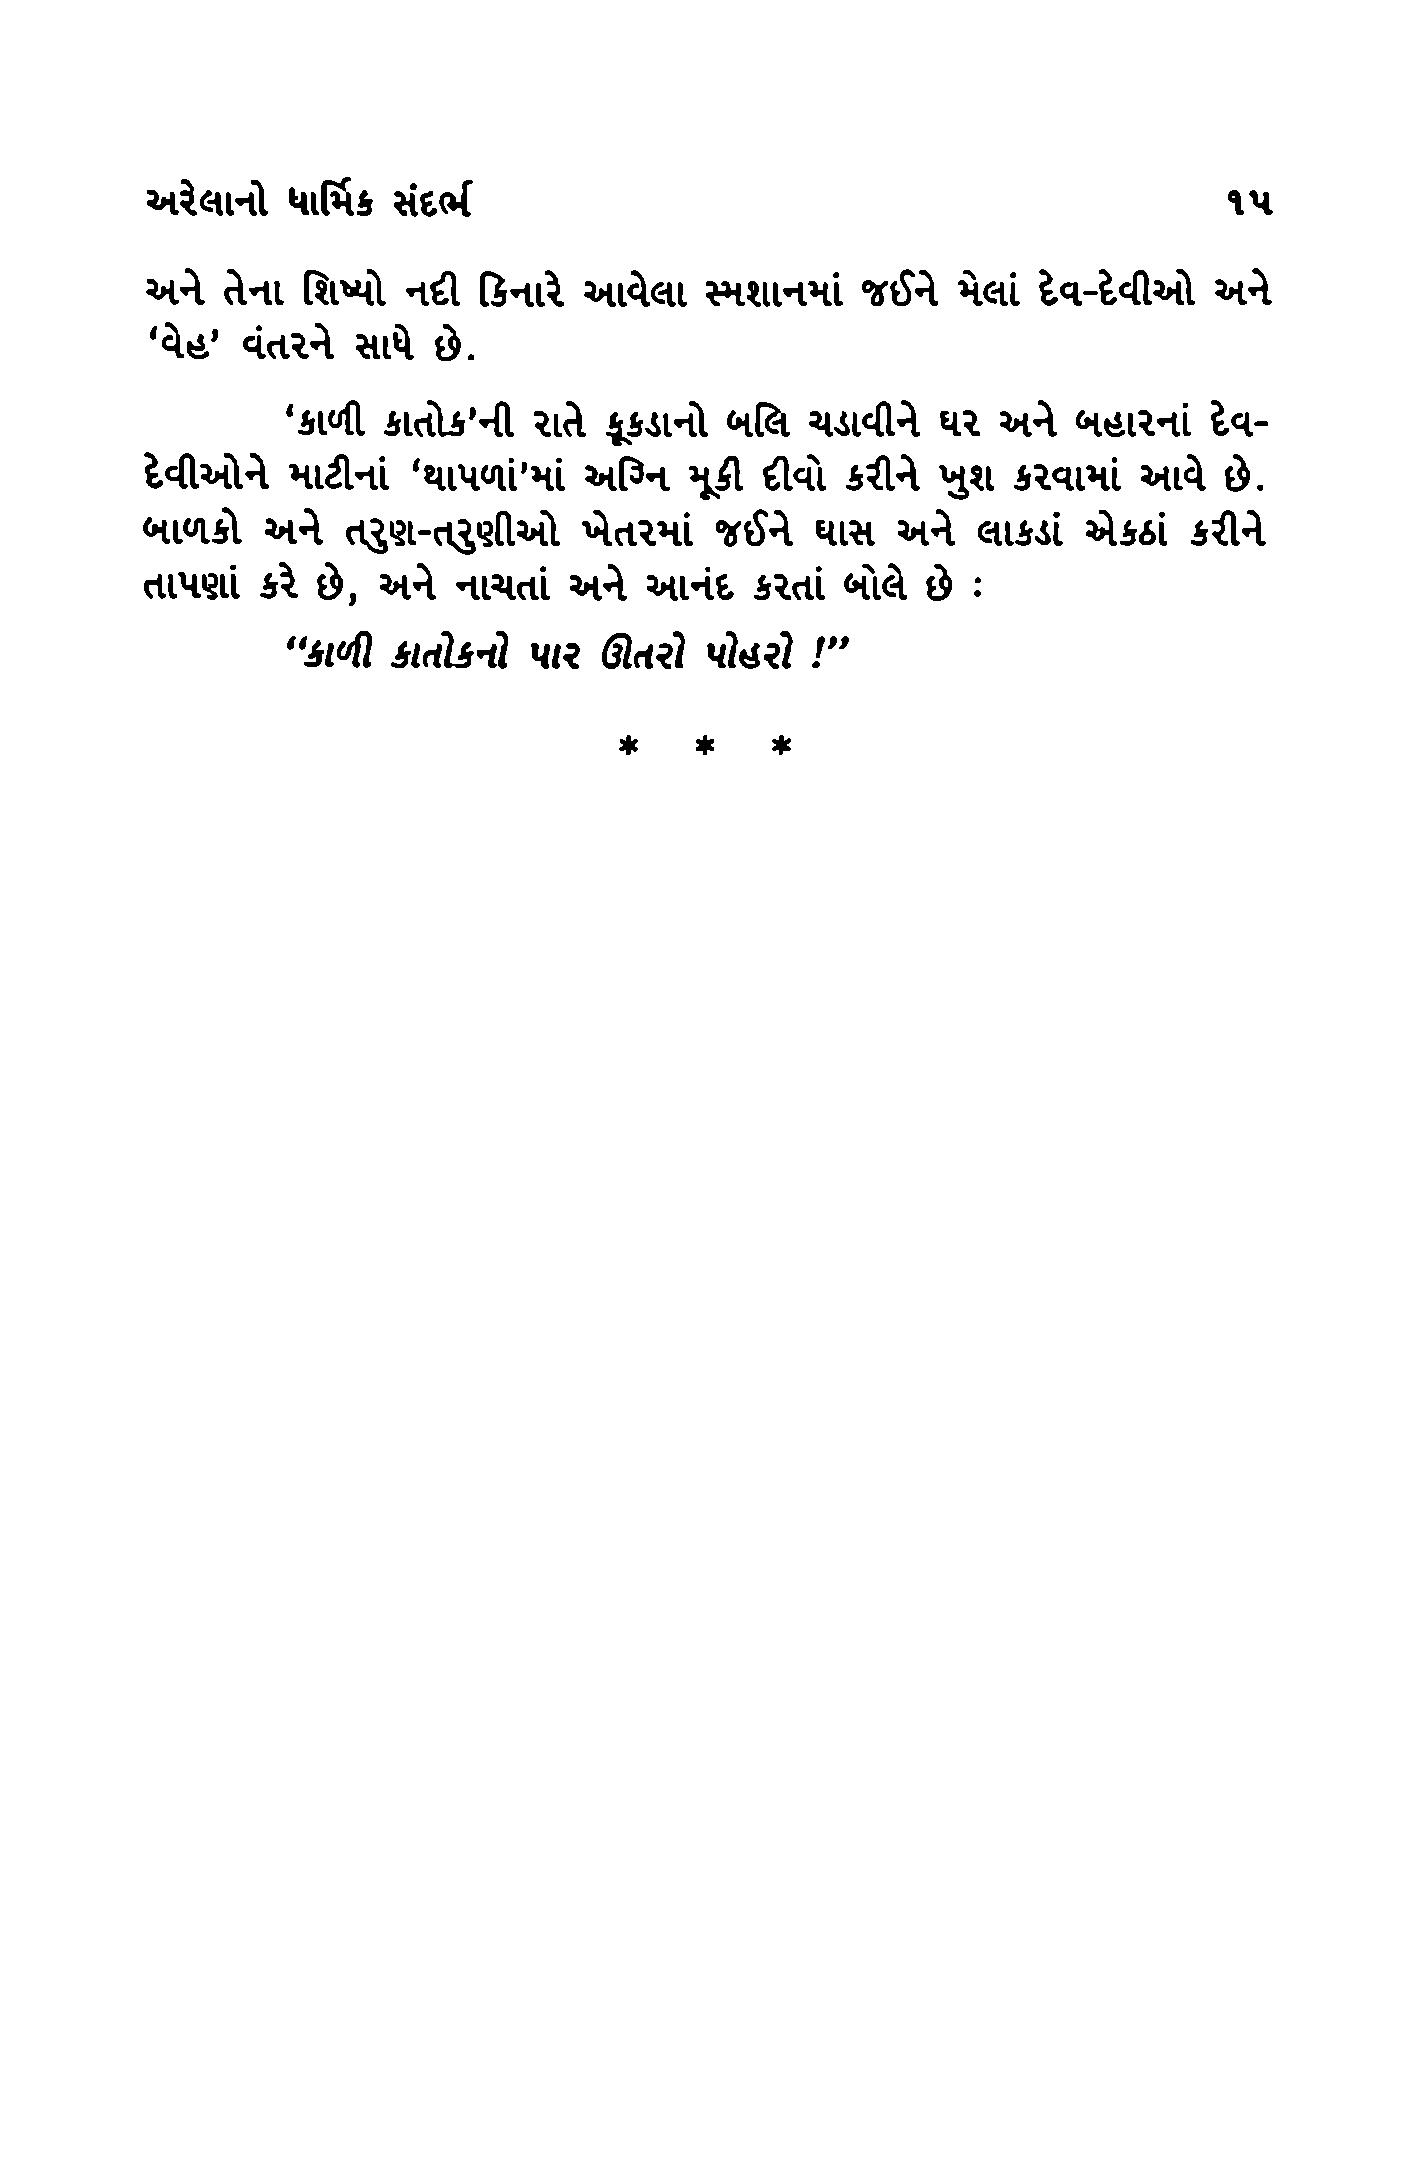 અરેલાનો ધાર્મિક સંદર્ભ ૧૫
અને તેના શિષ્યો નદી કિનારે આવેલા સ્મશાનમાં જઈને મેલાં દેવ-દેવીઓ અને
‘વેહ’ વંતરને સાધે છે.
‘કાળી કાતોક’ની રાતે કૂકડાનો બલિ ચડાવીને ઘર અને બહારનાં દેવ-
દેવીઓને માટીનાં ‘થાપળાં’માં અગ્નિ મૂકી દીવો કરીને ખુશ કરવામાં આવે છે.
બાળકો અને તરુણ-તરુણીઓ ખેતરમાં જઈને ઘાસ અને લાકડાં એકઠાં કરીને
તાપણાં કરે છે, અને નાચતાં અને આનંદ કરતાં બોલે છે :
“કાળી કાતોકનો પાર ઊતરો પોહરો !”
* * *